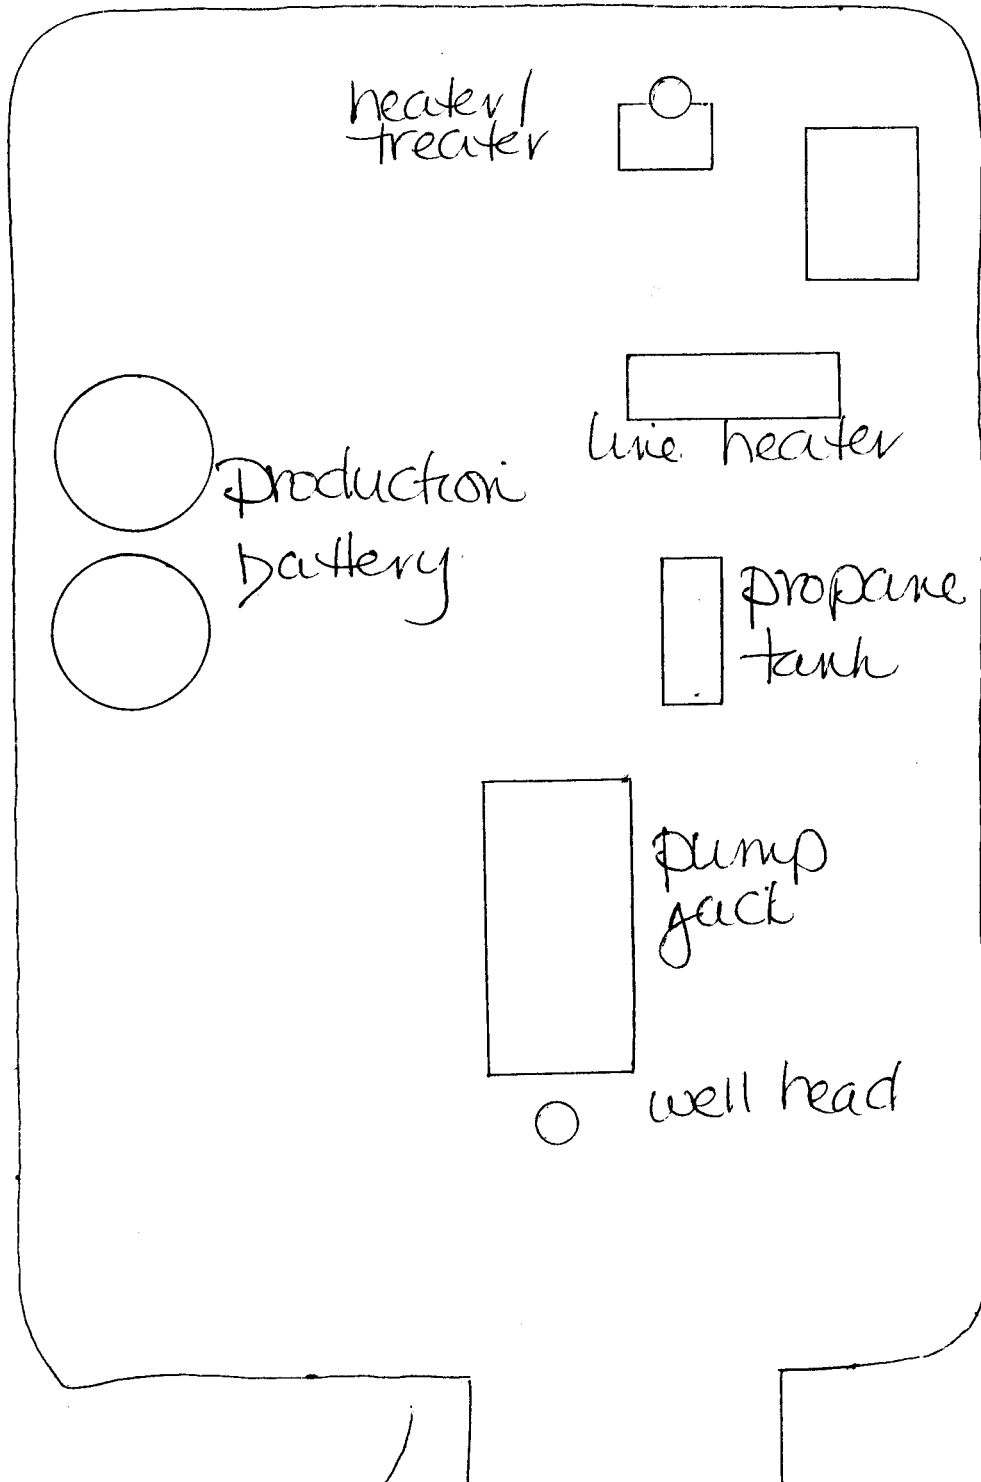 heater/
treater
line heater
production
battery
propane
tank
pump
jack
well head